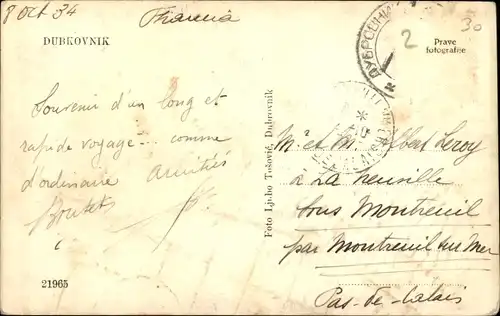 8 Oct 34
Francia
2
30
DUBROVNIK
Prave
fotografije
Souvenir d'un long et
rapide voyage... comme
d'ordinaire Amitiés
Foto Ljubo Tošović, Dubrovnik
Mr et Me Albert Leroy
à La Neuville
sous Montreuil
par Montreuil sur Mer
Pas-de-Calais
21965